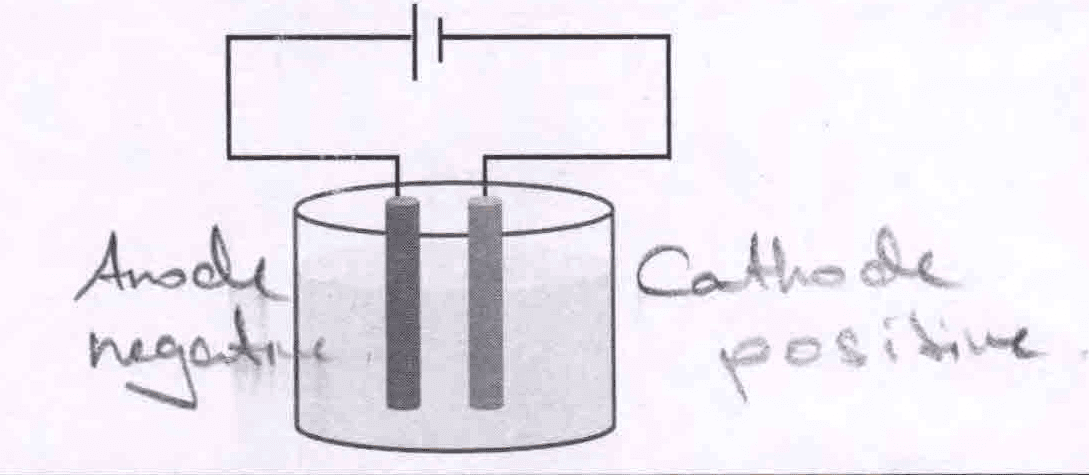 Anode
negative.
Cathode
positive.